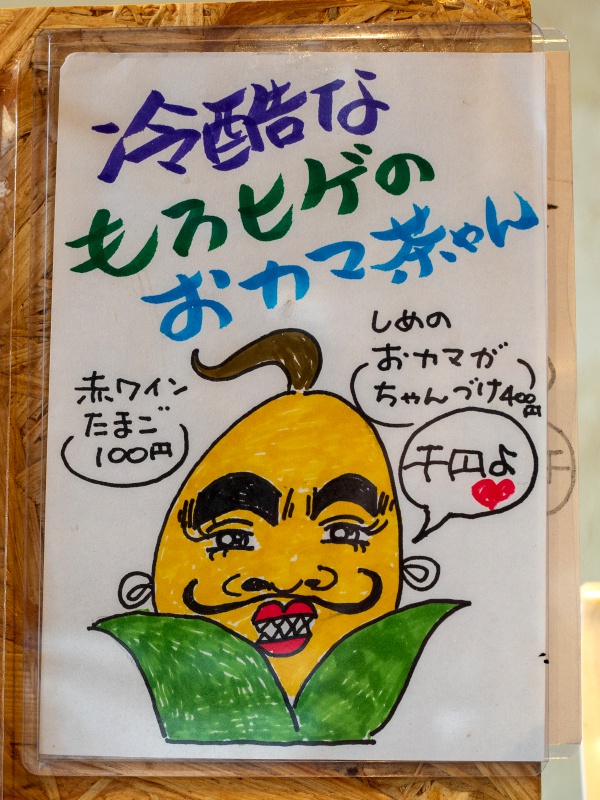 冷酷な
もろヒゲの
おカマ茶ゃん
しめの
おカマが
ちゃんづけ400円
赤ワイン
たまご
100円
千円よ